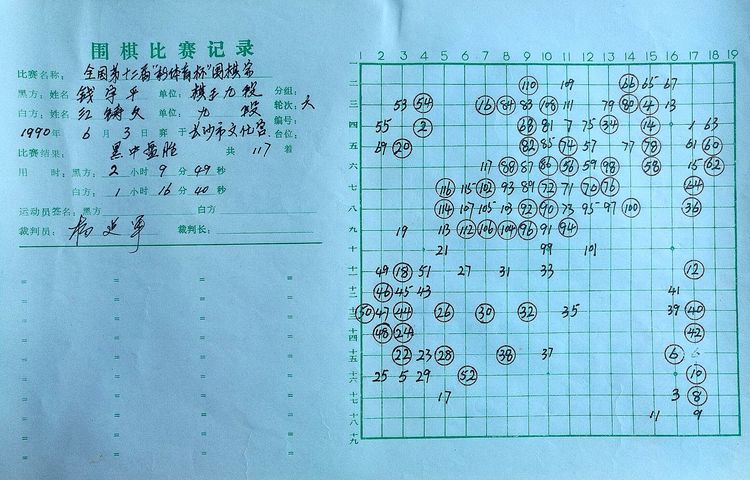 围棋比赛记录
比赛名称: 全国第十二届"新体育杯"围棋赛
黑方: 姓名 钱宇平 单位: 棋手九段 分组:
轮次: 天
白方: 姓名 江铸久 单位: 九段 编号:
1990年 6月 3日 弈于 长沙市文化宫 台位:
比赛结果: 黑中盘胜 共 117 着
用 时: 黑方: 2 小时 9 分 49 秒
白方: 1 小时 16 分 40 秒
运动员签名: 黑方 白方
裁判员: 裁判长:
1 2 3 4 5 6 7 8 9 10 11 12 13 14 15 16 17 18 19
一
二 110 109 66 65 67
三 53 54 16 84 83 108 111 79 80 4 13
四 55 2 68 81 7 75 34 14 1 63
五 69 20 82 85 74 57 77 78 61 60
六 117 88 87 86 56 59 98 58 15 62
七 116 115 102 93 89 72 71 70 76 64
八 114 107 105 103 92 90 73 95 97 100 36
九 19 113 112 106 104 96 91 94
十 21 99 101
十一 49 18 51 27 31 33 12
十二 46 45 43 41
十三 50 47 44 26 30 32 35 39 40
十四 48 24 42
十五 22 23 28 38 37 6
十六 25 5 29 52 10
十七 17 3 8
十八 11 9
十九